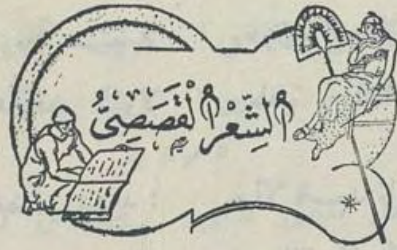 الشِّعْرُ الْقَصَصِىُّ